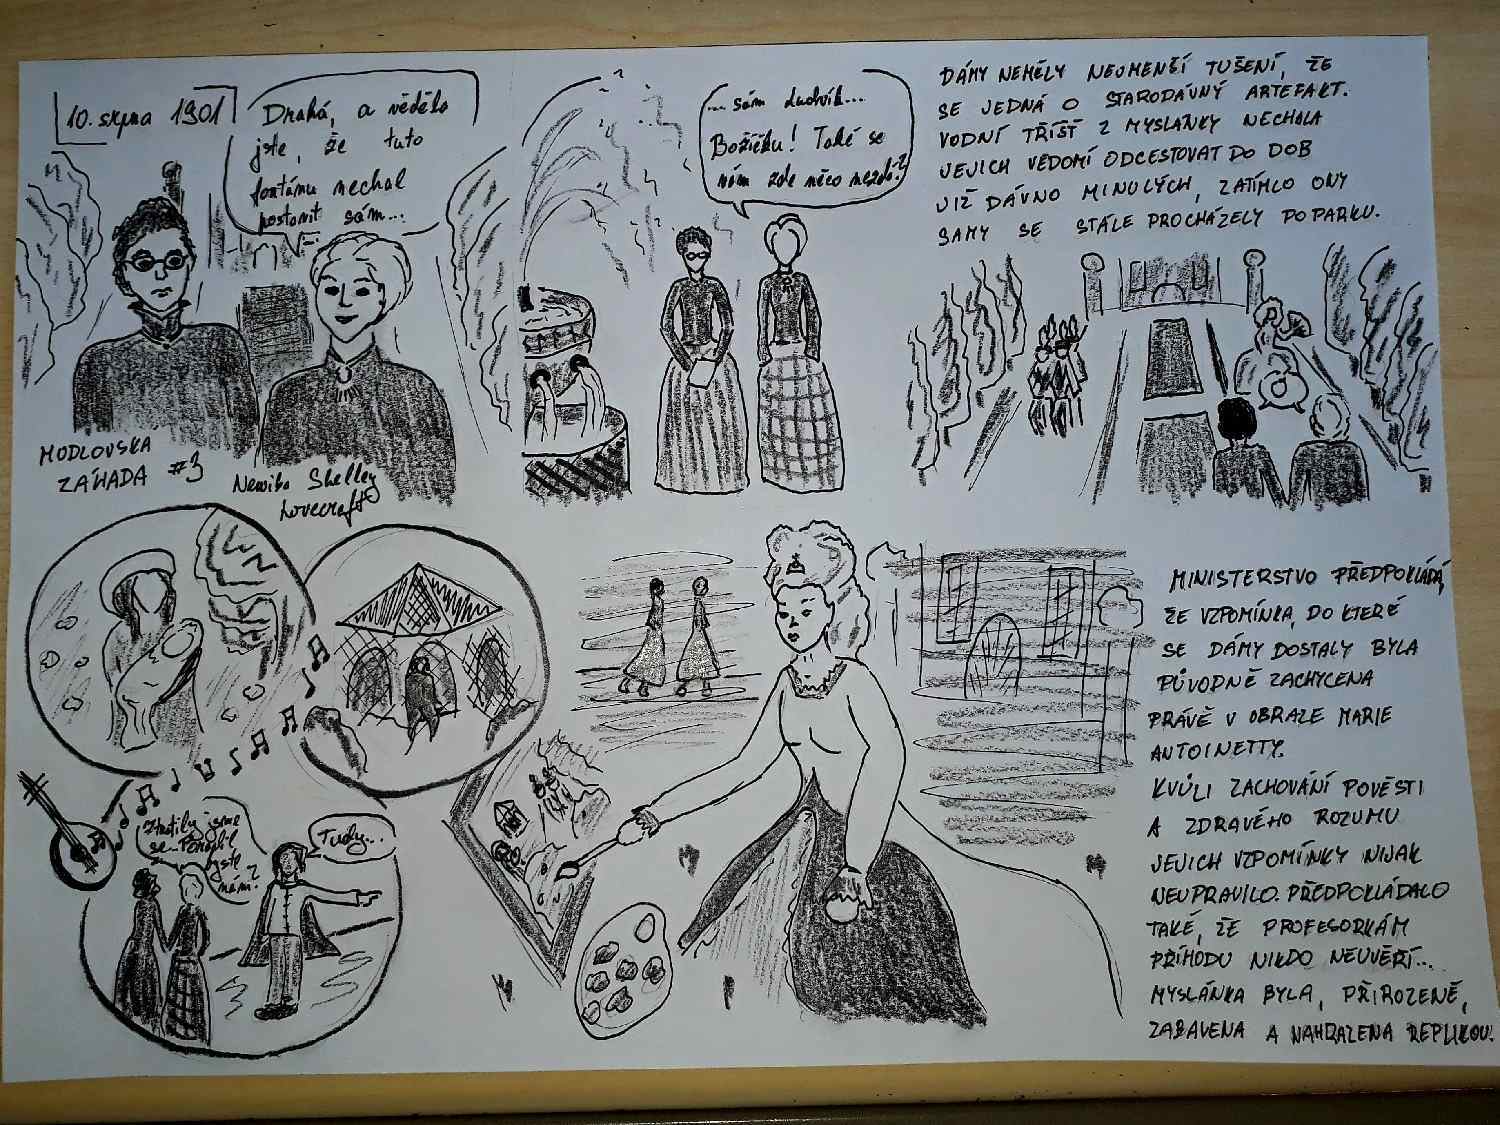 10. srpna 1901
Drahá, a věděla
jste, že tuto
fontánu nechal
postavit sám...
MODLOVSKA
ZÁHADA #3
Newiba Shelley
Lovecraft
... sám Ludvík...
Božíčku! Také se
vám zde něco nezdá?
DÁMY NEMĚLY NEJMENŠÍ TUŠENÍ, ŽE
SE JEDNÁ O STARODÁVNÝ ARTEFAKT.
VODNÍ TŘÍŠŤ Z MYSLÁNKY NECHALA
JEJICH VĚDOMÍ ODCESTOVAT DO DOB
JIŽ DÁVNO MINULÝCH, ZATÍMCO ONY
SAMY SE STÁLE PROCHÁZELY PO PARKU.
Ztratily jsme
se. Pomohl
byste
nám?
Tudy...
MINISTERSTVO PŘEDPOKLÁDÁ,
ŽE VZPOMÍNKA, DO KTERÉ
SE DÁMY DOSTALY BYLA
PŮVODNĚ ZACHYCENA
PRÁVĚ V OBRAZE MARIE
ANTOINETTY.
KVŮLI ZACHOVÁNÍ POVĚSTI
A ZDRAVÉHO ROZUMU
JEJICH VZPOMÍNKY NIJAK
NEUPRAVILO. PŘEDPOKLÁDALO
TAKÉ, ŽE PROFESORKÁM
PŘÍHODU NIKDO NEUVĚŘÍ...
MYSLÁNKA BYLA, PŘIROZENĚ,
ZABAVENA A NAHRAZENA REPLIKOU.